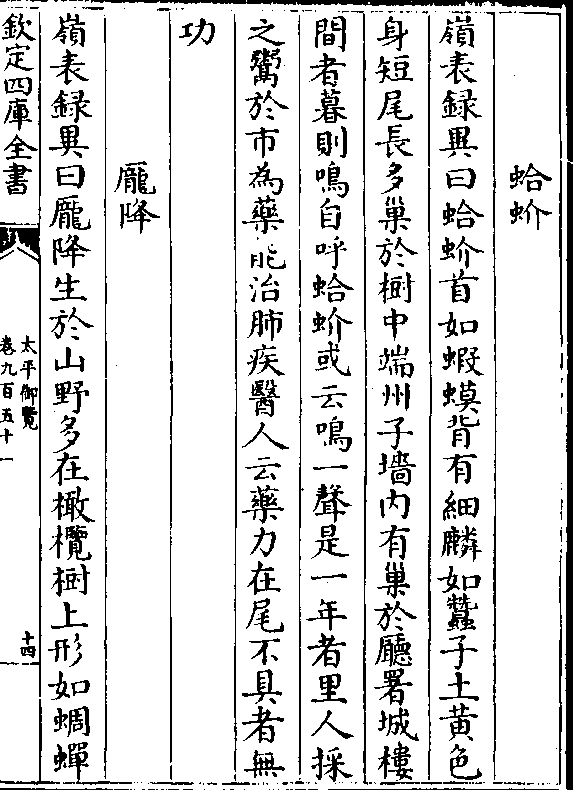 蛤蚧
嶺表録異曰蛤蚧首如蝦蟆背有細麟如蠶子土黄色
身短尾長多巢於樹中端州子墻内有巢於廳署城樓
間者暮則鳴自呼蛤蚧或云鳴一聲是一年者里人採
之鬻於市為藥能治肺疾醫人云藥力在尾不具者無
功
龎降
嶺表録異曰龎降生於山野多在橄欖樹上形如蜩蟬
欽定四庫全書
太平御覽
卷九百五十一
十四